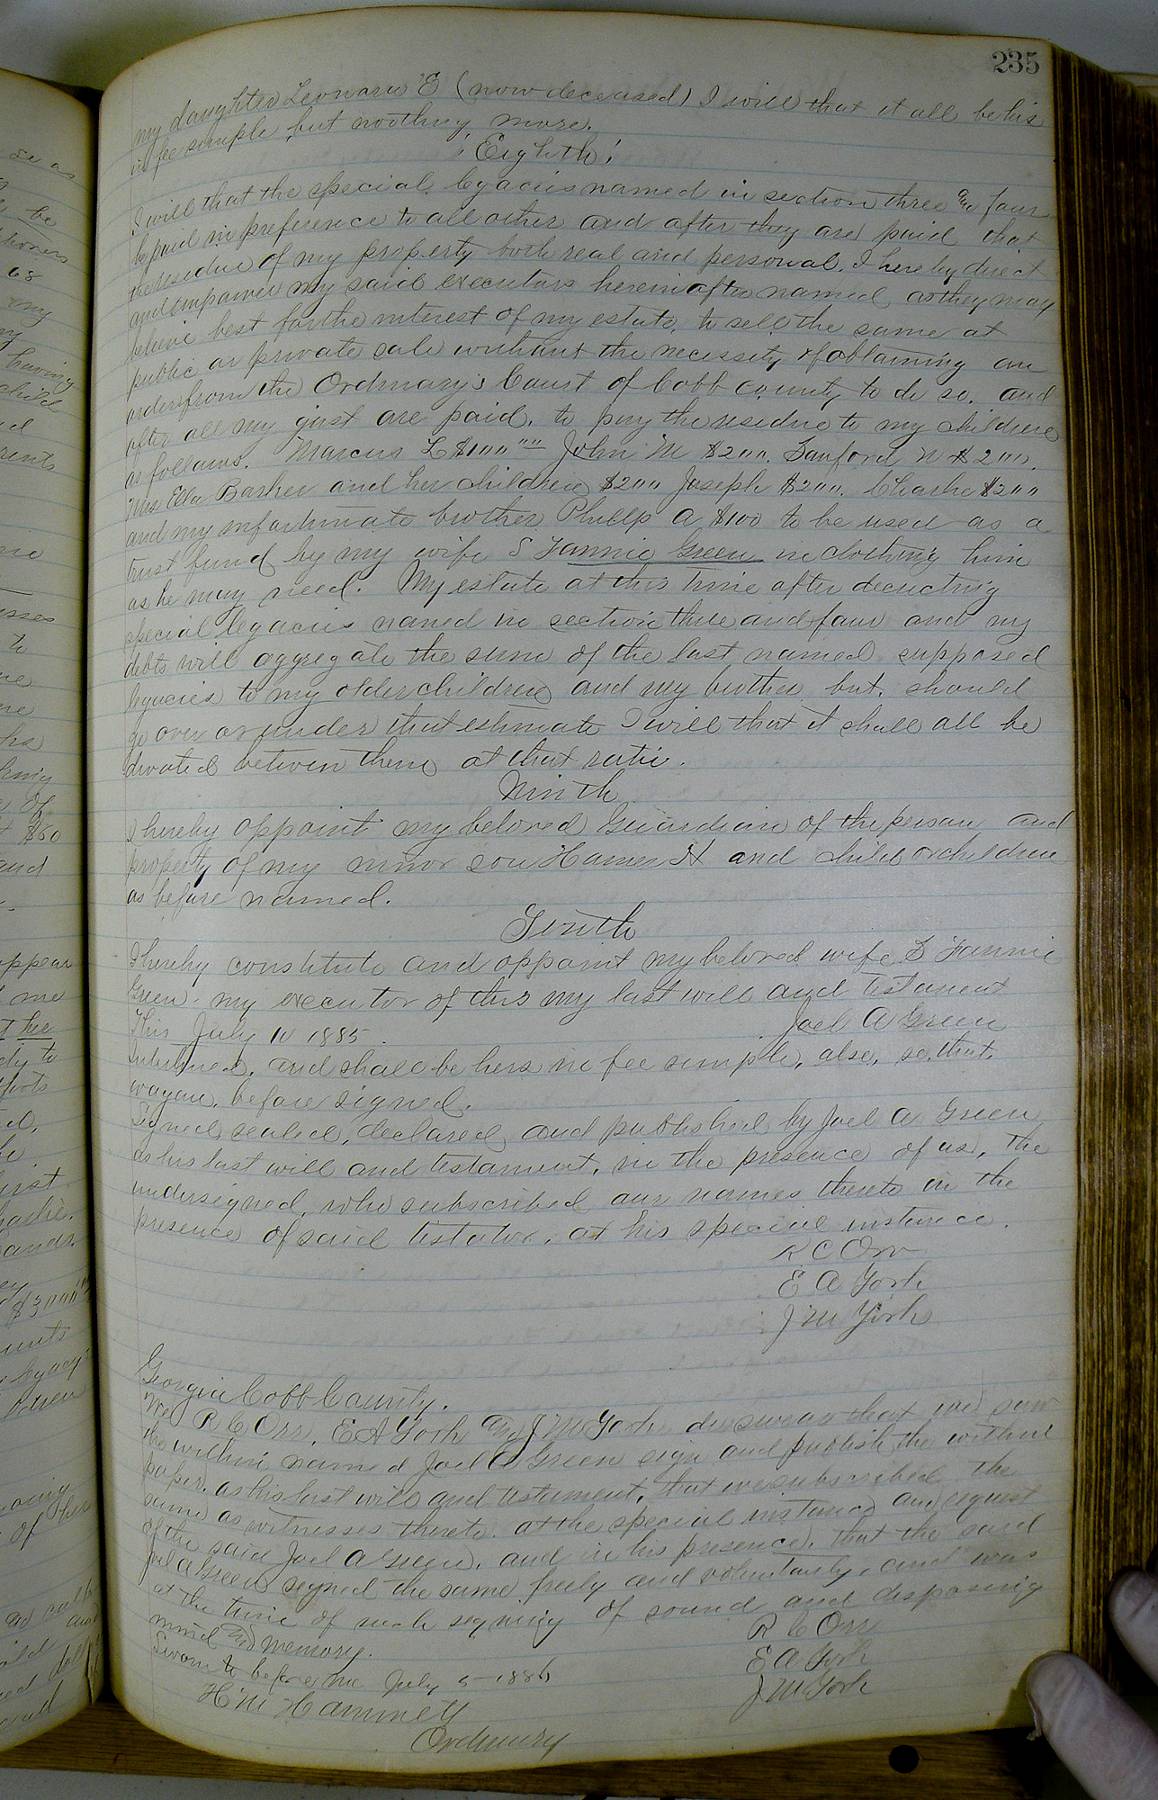 235
my daughter Leonora E (now deceased) I will that it all be his
in fee simple but nothing more.
"Eighth"
I will that the special legacies named in section three and four
be paid in preference to all other and after they are paid that
the residue of my property both real and personal, I hereby direct
and empower my said executors hereinafter named, as they may
believe best for the interest of my estate, to sell the same at
public or private sale without the necessity of obtaining an
order from the Ordinary's Court of Cobb county to do so. and
after all my just are paid, to pay the residue to my children
as follows. Marcus L $100"" John M $200. Sanford N $200.
Mrs Ella Barker and her children $200 Joseph $200. Charlie $200
and my infortunate brother Philip A $100 to be used as a
trust fund by my wife S Fannie Green in clothing him
as he may need. My estate at this time after deducting
special legacies named in section three and four and my
debts will aggregate the sum of the last named supposed
legacies to my older children and my brother but, should
go over or under that estimate I will that it shall all be
divided between them at that ratio.
Ninth
I hereby appoint my beloved Guardian of the person and
property of my minor son Homer H and child or children
as before named.
Tenth
I hereby constitute and appoint my beloved wife S Fannie
Green my executor of this my last will and testament
This July 10 1885. Joel A Green
Interlined, and shall be hers in fee simple, also, so, that.
wagon, before signed.
Signed sealed, declared, and published by Joel A Green
as his last will and testament, in the presence of us, the
undersigned, who subscribed our names thereto in the
presence of said testator, at his special instance.
R C Orr
E A York
J M York
Georgia Cobb County.
We R C Orr, E A York and J M York do swear that we saw
the within named Joel A Green sign and publish the within
paper, as his last will and testament, that we subscribed the
same as witnesses thereto. at the special instance and request
of the said Joel A Green, and in his presence, that the said
Joel A Green signed the same freely and voluntarily, and was
at the time of such signing of sound and disposing
mind and memory.
R C Orr
Sworn to before me July 5 1886
E A York
J M York
H M Hammett
Ordinary